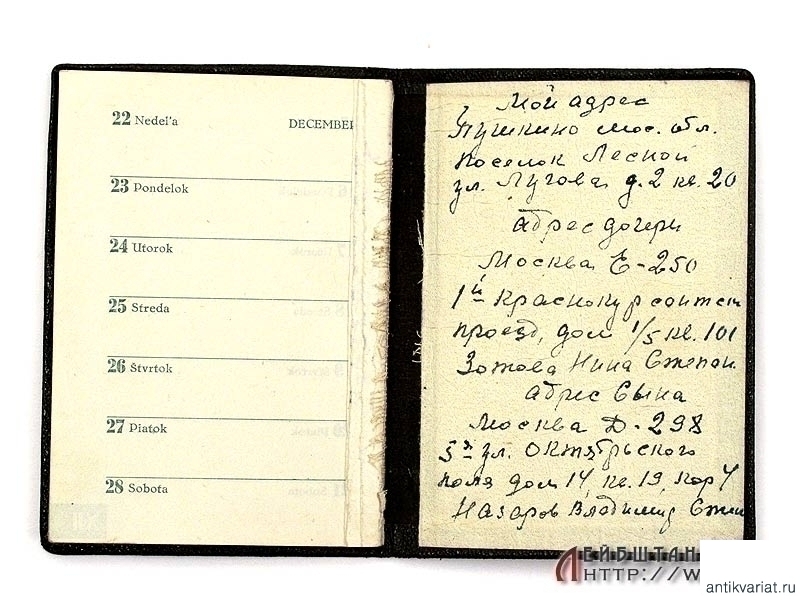 22 Nedel'a DECEMBER
23 Pondelok
24 Utorok
25 Streda
26 Štvrtok
27 Piatok
28 Sobota
Мой адрес
Пушкино Мос. обл.
поселок Лесной
ул. Лугова д. 2 кв. 20
Адрес дочери
Москва Е-250
1й Краснокурсантск
проезд, дом 1/5 кв. 101
Зотова Нина Степан
адрес Сына
Москва Д-298
5я ул. Октябрьского
поля дом 14 кв. 19, кор 4
Назаров Владимир Степ
ЛЕЙБШТАН
HTTP://W
antikvariat.ru